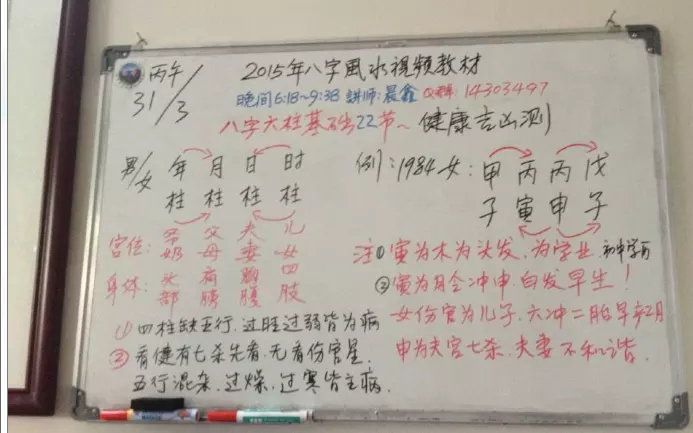 丙午
31/3
2015年八字風水視頻教材
晚间6:18~9:38 講师:晨鑫 Q群:14303497
八字六柱基础22节~健康吉凶测
男/女 年 月 日 时
柱 柱 柱 柱
宫位: 爷 父 夫 儿
奶 母 妻 女
身体: 头 肩 胸 四
部 膀 腹 肢
①四柱缺五行.过旺过弱皆为病
②看健有七杀先看.无看伤官星.
五行混杂.过燥.过寒皆主病.
例:1984女: 甲 丙 丙 戊
子 寅 申 子
注①寅为木为头发.为学业.初中学历
②寅为月令冲申.白发早生!
女伤官为儿子.六冲二胎早产2月
申为夫宫七杀.夫妻不和谐.